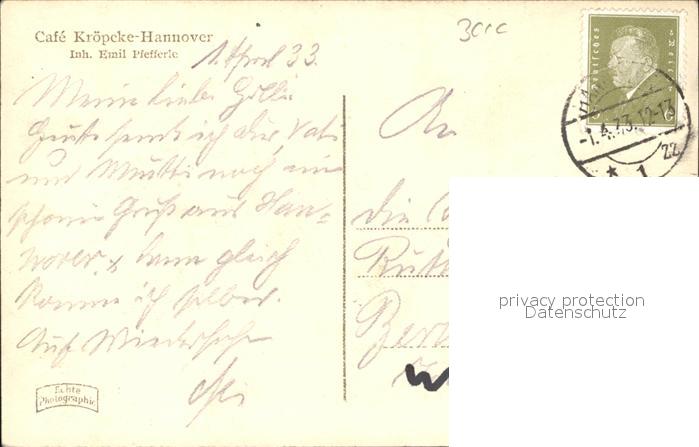 Café Kröpcke-Hannover
Inh. Emil Pfefferle
1. April 33.
Meine liebe
Heute sende ich dir, Vati
und Mutti noch ein
schönen Gruß aus Han-
nover, dann gleich
komme ich selber.
Auf Wiedersehn
Echte
Photographie
An
die
Deutsches Reich
6
-1.4.33.12-13
1
22
privacy protection
Datenschutz